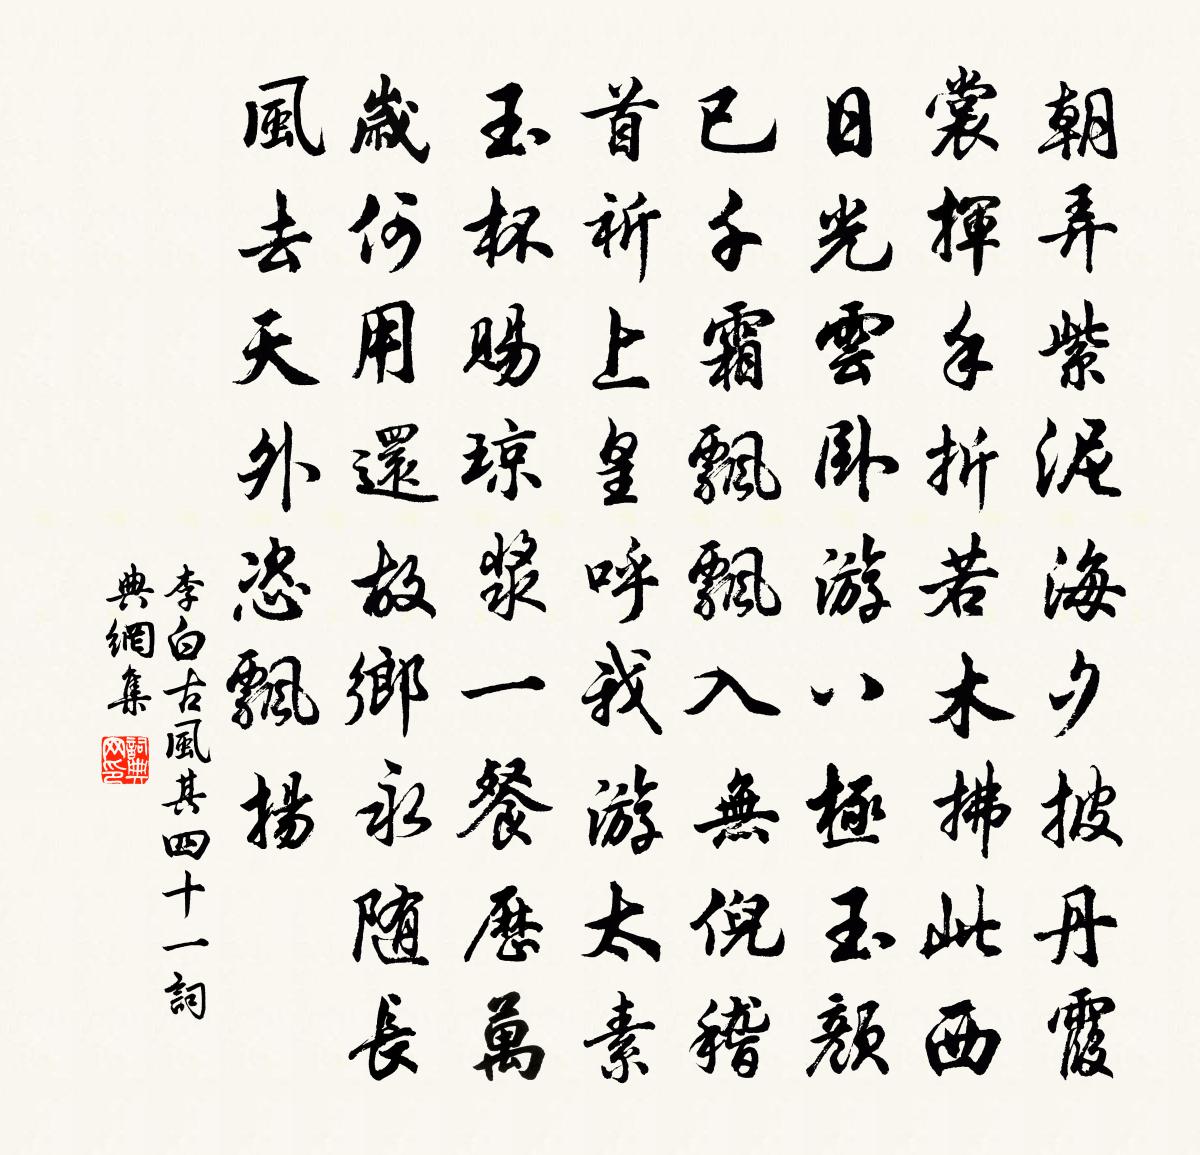 朝弄紫泥海夕披丹霞
裳揮手折若木拂此西
日光雲卧游八極玉顏
已千霜飄飄入無倪稽
首祈上皇呼我游太素
玉杯賜瓊漿一餐歷萬
歲何用還故鄉永隨長
風去天外恣飄揚
李白古風其四十一詞
典網集
詞典網印